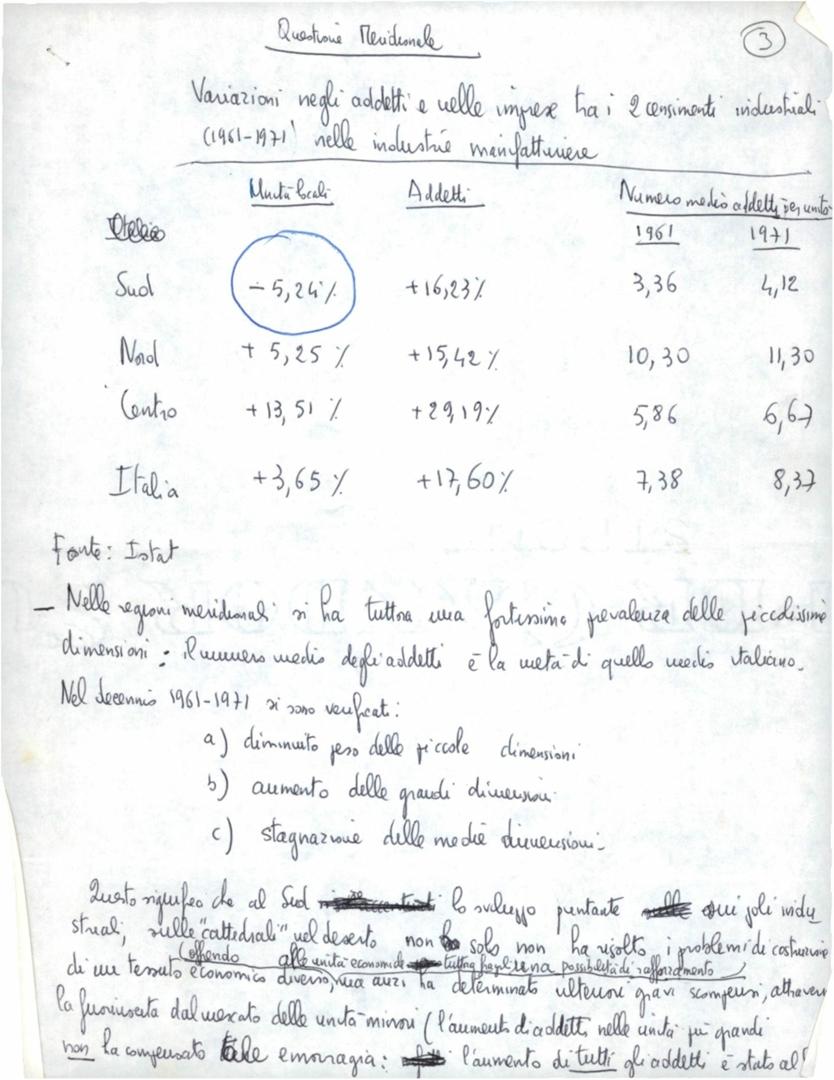 Questione Meridionale
3
Variazioni negli addetti e nelle imprese tra i 2 censimenti industriali
(1961-1971) nelle industrie manifatturiere
Unità locali Addetti Numero medio addetti per unità
1961 1971
Sud - 5,24% +16,23% 3,36 4,12
Nord + 5,25 % +15,42 % 10,30 11,30
Centro +13,51 % +29,19% 5,86 6,67
Italia +3,65 % +17,60% 7,38 8,37
Fonte: Istat
— Nelle regioni meridionali si ha tuttora una fortissima prevalenza delle piccolissime
dimensioni: il numero medio degli addetti è la metà di quello medio italiano.
Nel decennio 1961-1971 si sono verificati:
a) diminuito peso delle piccole dimensioni
b) aumento delle grandi dimensioni
c) stagnazione delle medie dimensioni-
Questo significa che al Sud lo sviluppo puntante sui poli indu
striali, sulle "cattedrali" nel deserto non solo non ha risolto i problemi di costruzione
offrendo alle unità economiche tuttora una possibilità di rafforzamento
di un tessuto economico diverso, ma anzi ha determinato ulteriori gravi scompensi, attraverso
la fuoriuscita dal mercato delle unità minori (l'aumento di addetti nelle unità più grandi
non ha compensato tale emorragia: l'aumento di tutti gli addetti è stato al